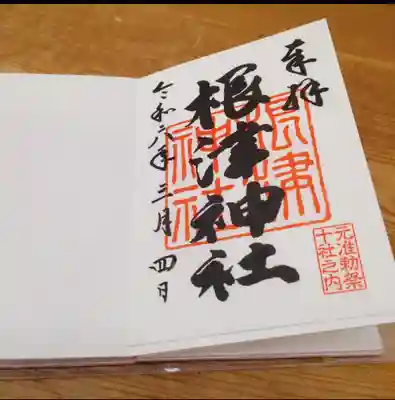 奉拝
根津神社
令和六年三月四日
根津神社
元准勅祭
十社之内